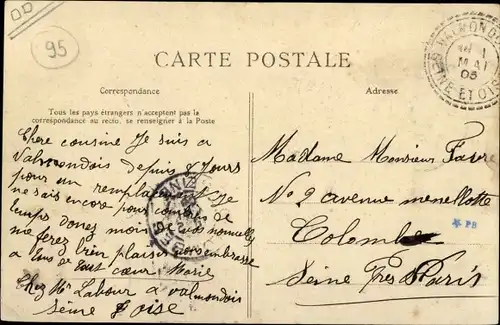 95
CARTE POSTALE
Correspondance
Adresse
Tous les pays étrangers n'acceptent pas la
correspondance au recto, se renseigner à la Poste
VALMONDOIS
MAI
05
SEINE ET OISE
Chere cousine Je suis a
Valmondois depuis 8 Jours
pour un Je
ne sais encore pour combien de
temps donez moi de vos nouvelles
me ferez bien plaisir
a tous de tout cœur Marie
Chez Mr Labour a Valmondois
Seine & oise
Madame Monsieur Favre
No 2 avenue menelotte
Colombe
Seine Près Paris
PB